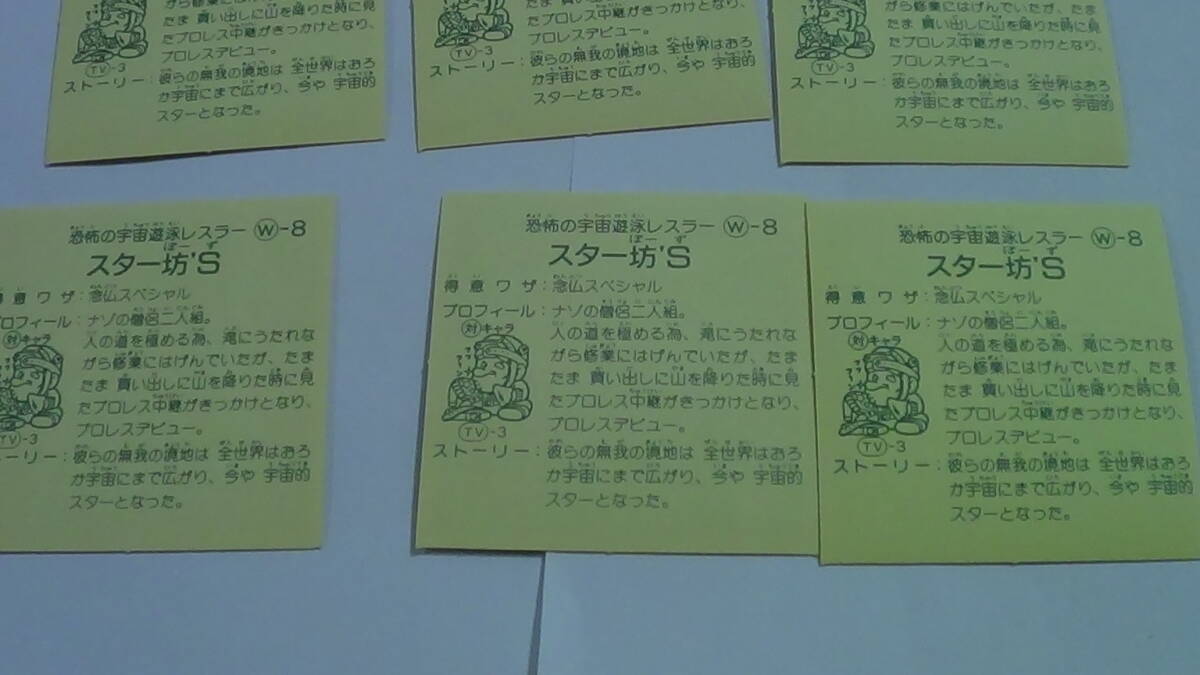 がら修業にはげんでいたが、たま
たま 買い出しに山を降りた時に見
たプロレス中継がきっかけとなり、
プロレスデビュー。
TV-3
ストーリー：彼らの無我の境地は 全世界はおろ
か宇宙にまで広がり、今や 宇宙的
スターとなった。
たま 買い出しに山を降りた時に見
たプロレス中継がきっかけとなり、
プロレスデビュー。
TV-3
ストーリー：彼らの無我の境地は 全世界はおろ
か宇宙にまで広がり、今や 宇宙的
スターとなった。
がら修業にはげんでいたが、たま
たま 買い出しに山を降りた時に見
たプロレス中継がきっかけとなり、
プロレスデビュー。
TV-3
ストーリー：彼らの無我の境地は 全世界はおろ
か宇宙にまで広がり、今や 宇宙的
スターとなった。
恐怖の宇宙遊泳レスラー W-8
ぼーず
スター坊'S
得意ワザ：念仏スペシャル
プロフィール：ナゾの僧侶二人組。
対キャラ
人の道を極める為、滝にうたれな
がら修業にはげんでいたが、たま
たま 買い出しに山を降りた時に見
たプロレス中継がきっかけとなり、
プロレスデビュー。
TV-3
ーリー：彼らの無我の境地は 全世界はおろ
か宇宙にまで広がり、今や 宇宙的
スターとなった。
恐怖の宇宙遊泳レスラー W-8
ぼーず
スター坊'S
得意ワザ：念仏スペシャル
プロフィール：ナゾの僧侶二人組。
対キャラ
人の道を極める為、滝にうたれな
がら修業にはげんでいたが、たま
たま 買い出しに山を降りた時に見
たプロレス中継がきっかけとなり、
プロレスデビュー。
TV-3
ストーリー：彼らの無我の境地は 全世界はおろ
か宇宙にまで広がり、今や 宇宙的
スターとなった。
恐怖の宇宙遊泳レスラー W-8
ぼーず
スター坊'S
得意ワザ：念仏スペシャル
プロフィール：ナゾの僧侶二人組。
対キャラ
人の道を極める為、滝にうたれな
がら修業にはげんでいたが、たま
たま 買い出しに山を降りた時に見
たプロレス中継がきっかけとなり、
プロレスデビュー。
TV-3
ストーリー：彼らの無我の境地は 全世界はおろ
か宇宙にまで広がり、今や 宇宙的
スターとなった。